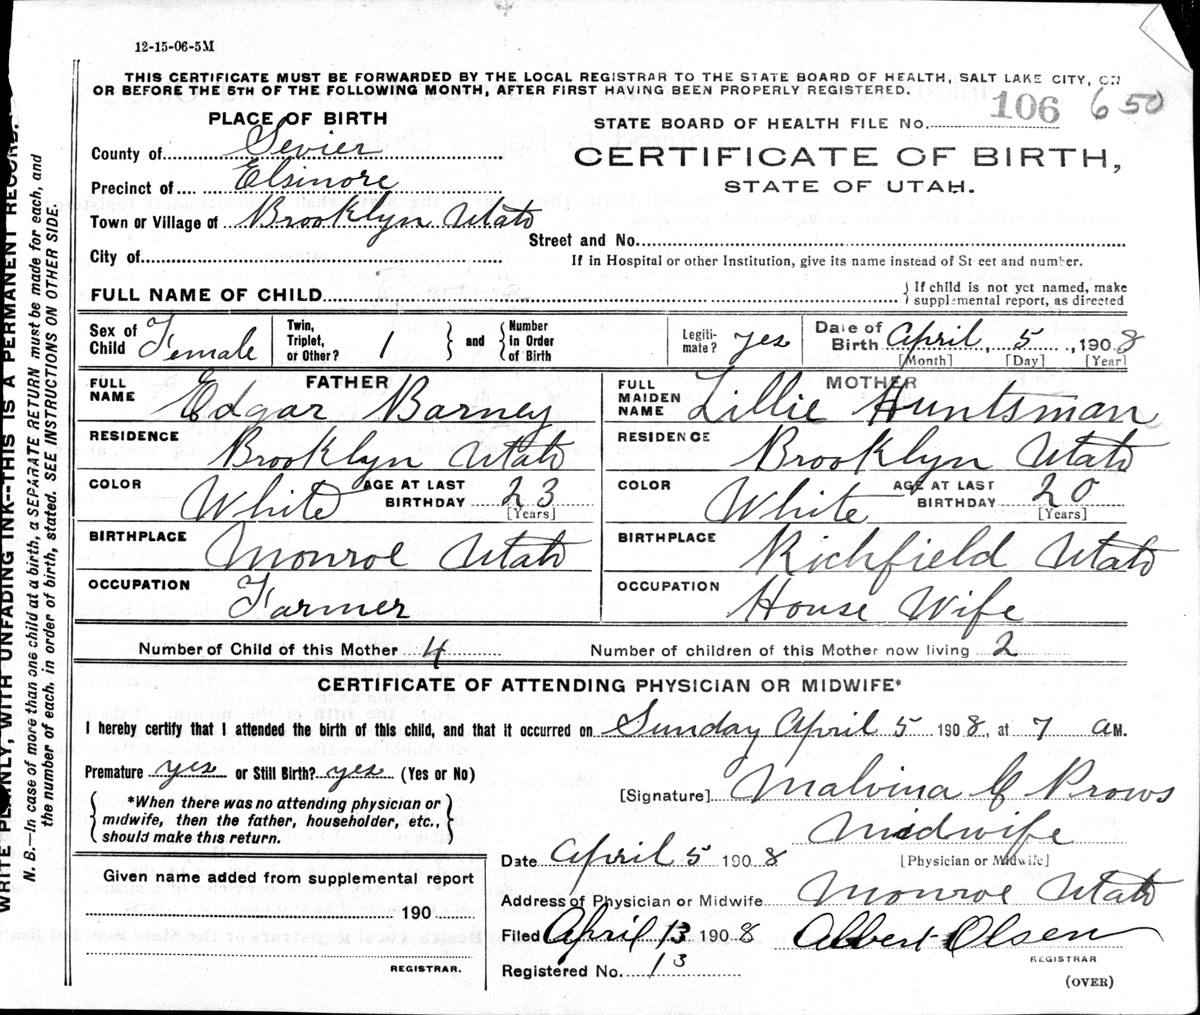 12-15-06-5M
THIS CERTIFICATE MUST BE FORWARDED BY THE LOCAL REGISTRAR TO THE STATE BOARD OF HEALTH, SALT LAKE CITY, ON
OR BEFORE THE 5TH OF THE FOLLOWING MONTH, AFTER FIRST HAVING BEEN PROPERLY REGISTERED.
106 650
PLACE OF BIRTH
STATE BOARD OF HEALTH FILE No.
County of Sevier
CERTIFICATE OF BIRTH,
Precinct of Elsinore
STATE OF UTAH.
Town or Village of Brooklyn Utah
Street and No.
City of
If in Hospital or other Institution, give its name instead of Street and number.
FULL NAME OF CHILD
{ If child is not yet named, make
supplemental report, as directed
Sex of Child Female
Twin, Triplet, or Other? 1 } and { Number in Order of Birth
Legiti-mate? yes
Date of Birth April 5, 1908
[Month] [Day] [Year]
FATHER
FULL NAME Edgar Barney
RESIDENCE Brooklyn Utah
COLOR White AGE AT LAST BIRTHDAY 23
[Years]
BIRTHPLACE Monroe Utah
OCCUPATION Farmer
MOTHER
FULL MAIDEN NAME Lillie Huntsman
RESIDENCE Brooklyn Utah
COLOR White AGE AT LAST BIRTHDAY 20
[Years]
BIRTHPLACE Richfield Utah
OCCUPATION House Wife
Number of Child of this Mother 4 Number of children of this Mother now living 2
CERTIFICATE OF ATTENDING PHYSICIAN OR MIDWIFE*
I hereby certify that I attended the birth of this child, and that it occurred on Sunday April 5 1908, at 7 a M.
Premature yes or Still Birth? yes (Yes or No)
{ *When there was no attending physician or
midwife, then the father, householder, etc.,
should make this return. }
[Signature] Malvina C Prows
Midwife
[Physician or Midwife]
Date April 5 1908
Address of Physician or Midwife Monroe Utah
Given name added from supplemental report
190
REGISTRAR.
Filed April 13 1908 Albert Olsen
REGISTRAR
Registered No. 13
(OVER)
WRITE PLAINLY, WITH UNFADING INK--THIS IS A PERMANENT RECORD.
N. B.—In case of more than one child at a birth, a SEPARATE RETURN must be made for each, and
the number of each, in order of birth, stated. SEE INSTRUCTIONS ON OTHER SIDE.